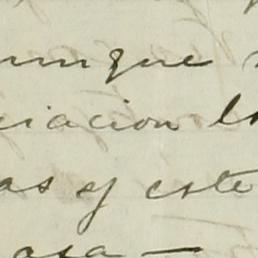 unque
ciacion lo
as y este
asa —